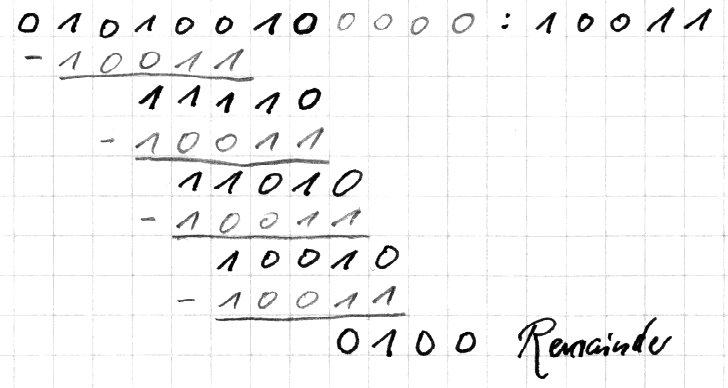 0 1 0 1 0 0 1 0 0 0 0 0 : 1 0 0 1 1
- 1 0 0 1 1
1 1 1 1 0
- 1 0 0 1 1
1 1 0 1 0
- 1 0 0 1 1
1 0 0 1 0
- 1 0 0 1 1
0 1 0 0 Remainder